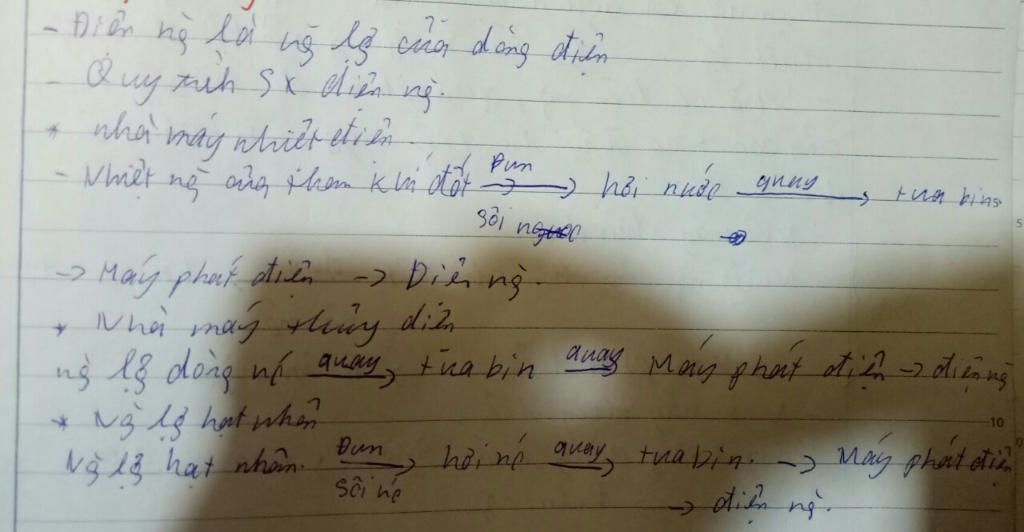 - Điện ng là ng lg của dòng điện
- Quy trình SX điện ng.
* nhà máy nhiệt điện.
- Nhiệt ng của than khi đốt Đun sôi → hơi nước quay → tua bin
→ Máy phát điện → Điện ng.
* Nhà máy thủy điện
ng lg dòng nc quay → tua bin quay Máy phát điện → điện ng
* Ng lg hạt nhân
Ng lg hạt nhân. Đun sôi nc → hơi nc quay → tua bin. → Máy phát điện
→ điện ng.